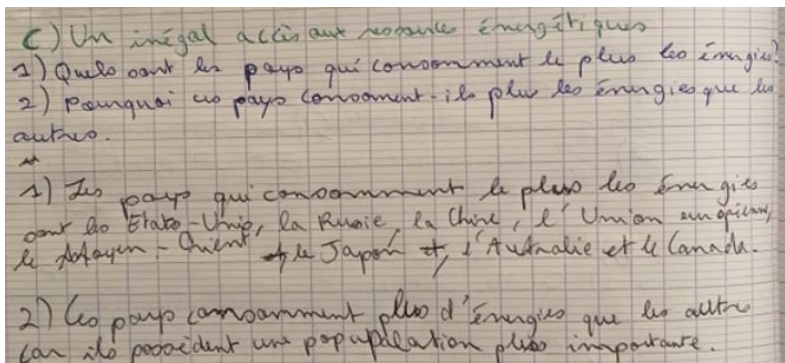 C) Un inégal accès aux ressources énergétiques
1) Quels sont les pays qui consomment le plus les énergies?
2) Pourquoi ces pays consoment-ils plus les énergies que les
autres.
1) Les pays qui consomment le plus les énergies
sont les Etats-Unis, la Russie, la Chine, l'Union européenne,
le Moyen-Orient, le Japon, l'Australie et le Canada.
2) Ces pays consomment plus d'énergies que les autres
car ils possèdent une population plus importante.